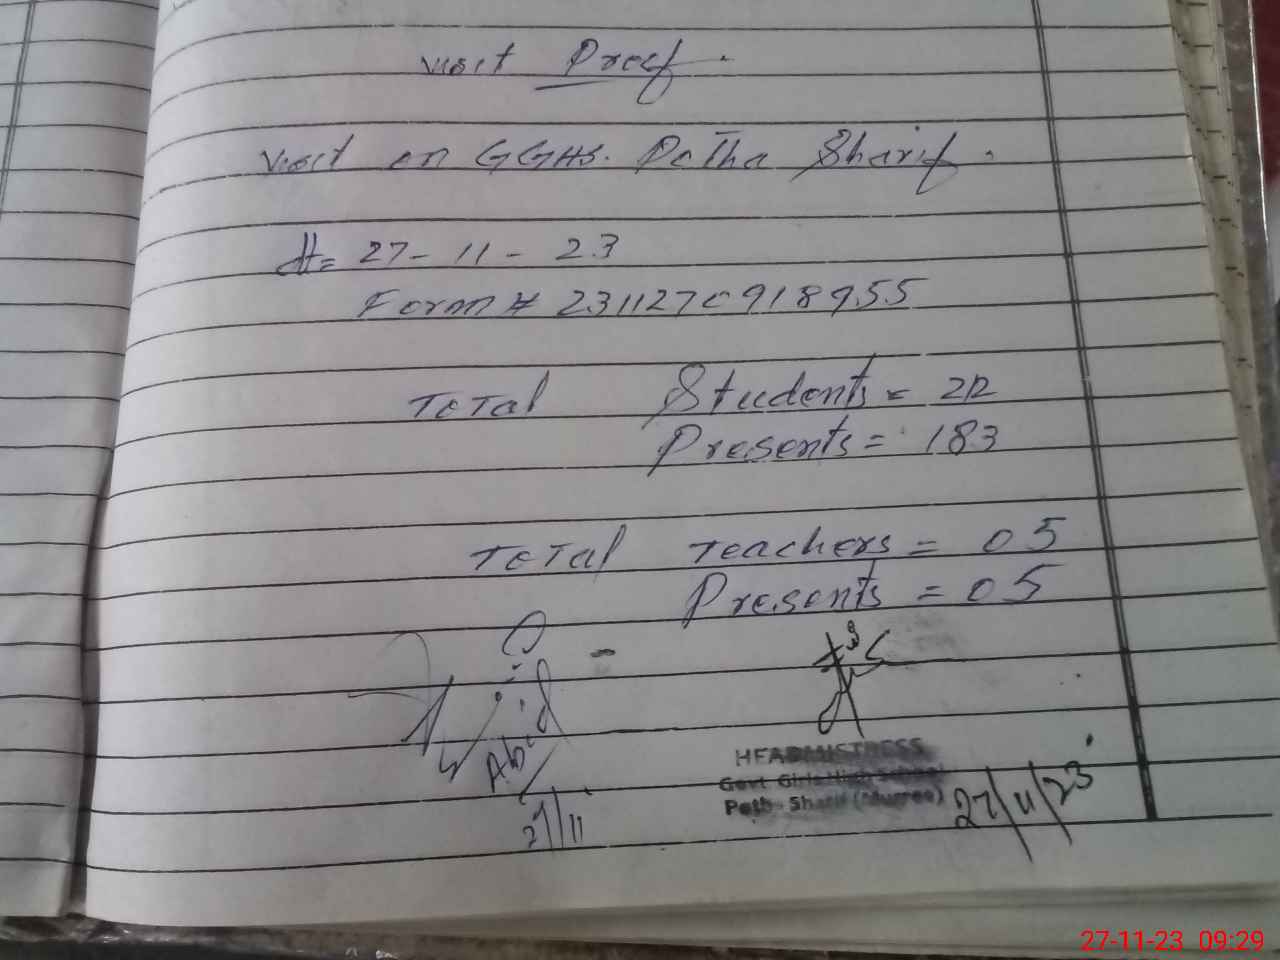 visit Proof.
visit on GGHS. Patha Sharif.
dt= 27- 11 - 23
Form # 231127091895 5
Total Students = 212
Presents = 183
Total Teachers = 05
Presents = 05
Abid
27/11
HEADMISTRESS
Govt Girls High School
Path Sharif (Murree)
27/11/23
27-11-23 09:29